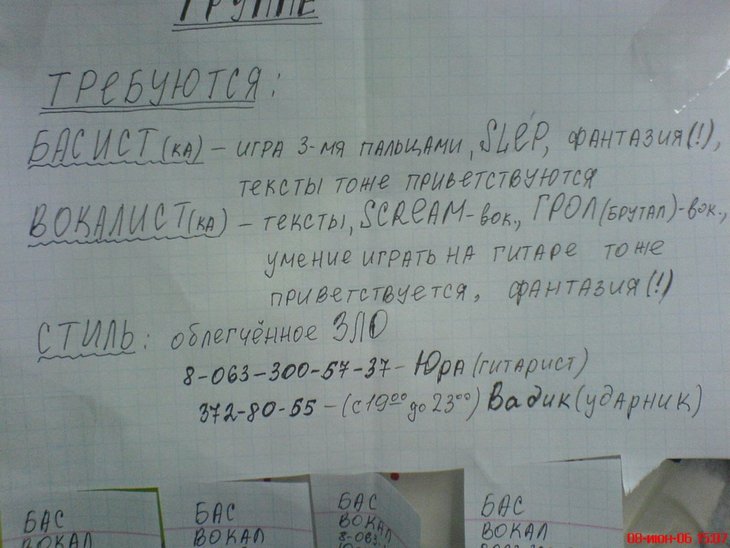 ГРУППЕ
ТРЕБУЮТСЯ:
БАСИСТ(КА) – ИГРА 3-МЯ ПАЛЬЦАМИ, SLEP, ФАНТАЗИЯ(!),
ТЕКСТЫ ТОЖЕ ПРИВЕТСТВУЮТСЯ
ВОКАЛИСТ(КА) – ТЕКСТЫ, SCREAM-вок., ГРОЛ(БРУТАЛ)-вок.,
УМЕНИЕ ИГРАТЬ НА ГИТАРЕ ТОЖЕ
ПРИВЕТСТВУЕТСЯ, ФАНТАЗИЯ(!)
СТИЛЬ: облегчённое ЗЛО
8-063-300-57-37 – Юра (гитарист)
372-80-55 – (с 19⁰⁰ до 23⁰⁰) Вадик (ударник)
БАС БАС БАС БАС
ВОКАЛ ВОКАЛ ВОКАЛ ВОКАЛ
8-063-
08-июн-06 15:07